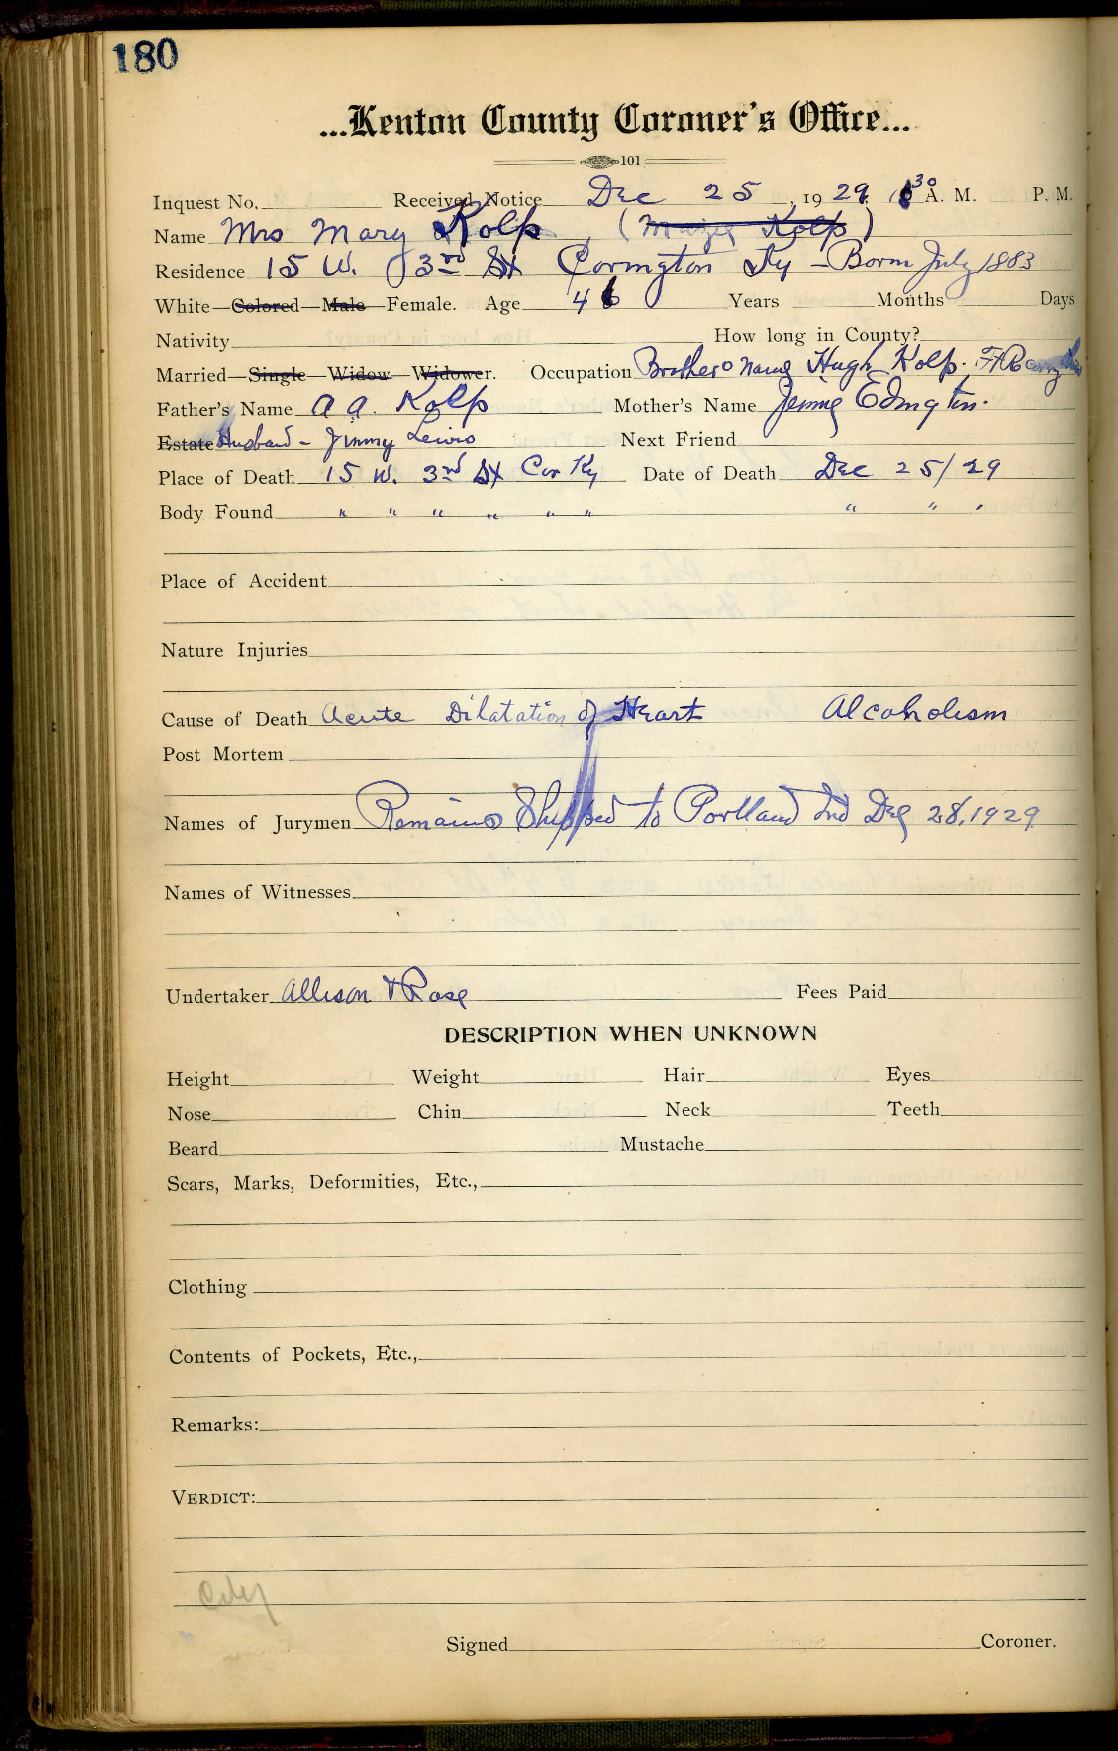 180
...Kenton County Coroner's Office...
101
Inquest No. Received Notice Dec 25, 1929. 30 A. M. P. M.
Name Mrs Mary Kolp, ( Kolp)
Residence 15 W. 3rd St Covington Ky – Born July 1883
White—Colored—Male—Female. Age 46 Years Months Days
Nativity How long in County?
Married—Single—Widow—Widower. Occupation Brothers name Hugh Kolp.
Father's Name A A. Kolp Mother's Name Jennie Edington.
Estate Husband – Jimmy Lewis Next Friend
Place of Death 15 W. 3rd St Cov Ky Date of Death Dec 25/29
Body Found " " " " " " " " "
Place of Accident
Nature Injuries
Cause of Death Acute Dilatation of Heart Alcoholism
Post Mortem
Names of Jurymen Remains Shipped to Portland Ind Dec 28, 1929
Names of Witnesses
Undertaker Allison & Rose Fees Paid
DESCRIPTION WHEN UNKNOWN
Height Weight Hair Eyes
Nose Chin Neck Teeth
Beard Mustache
Scars, Marks, Deformities, Etc.,
Clothing
Contents of Pockets, Etc.,
Remarks:
VERDICT:
City
Signed Coroner.